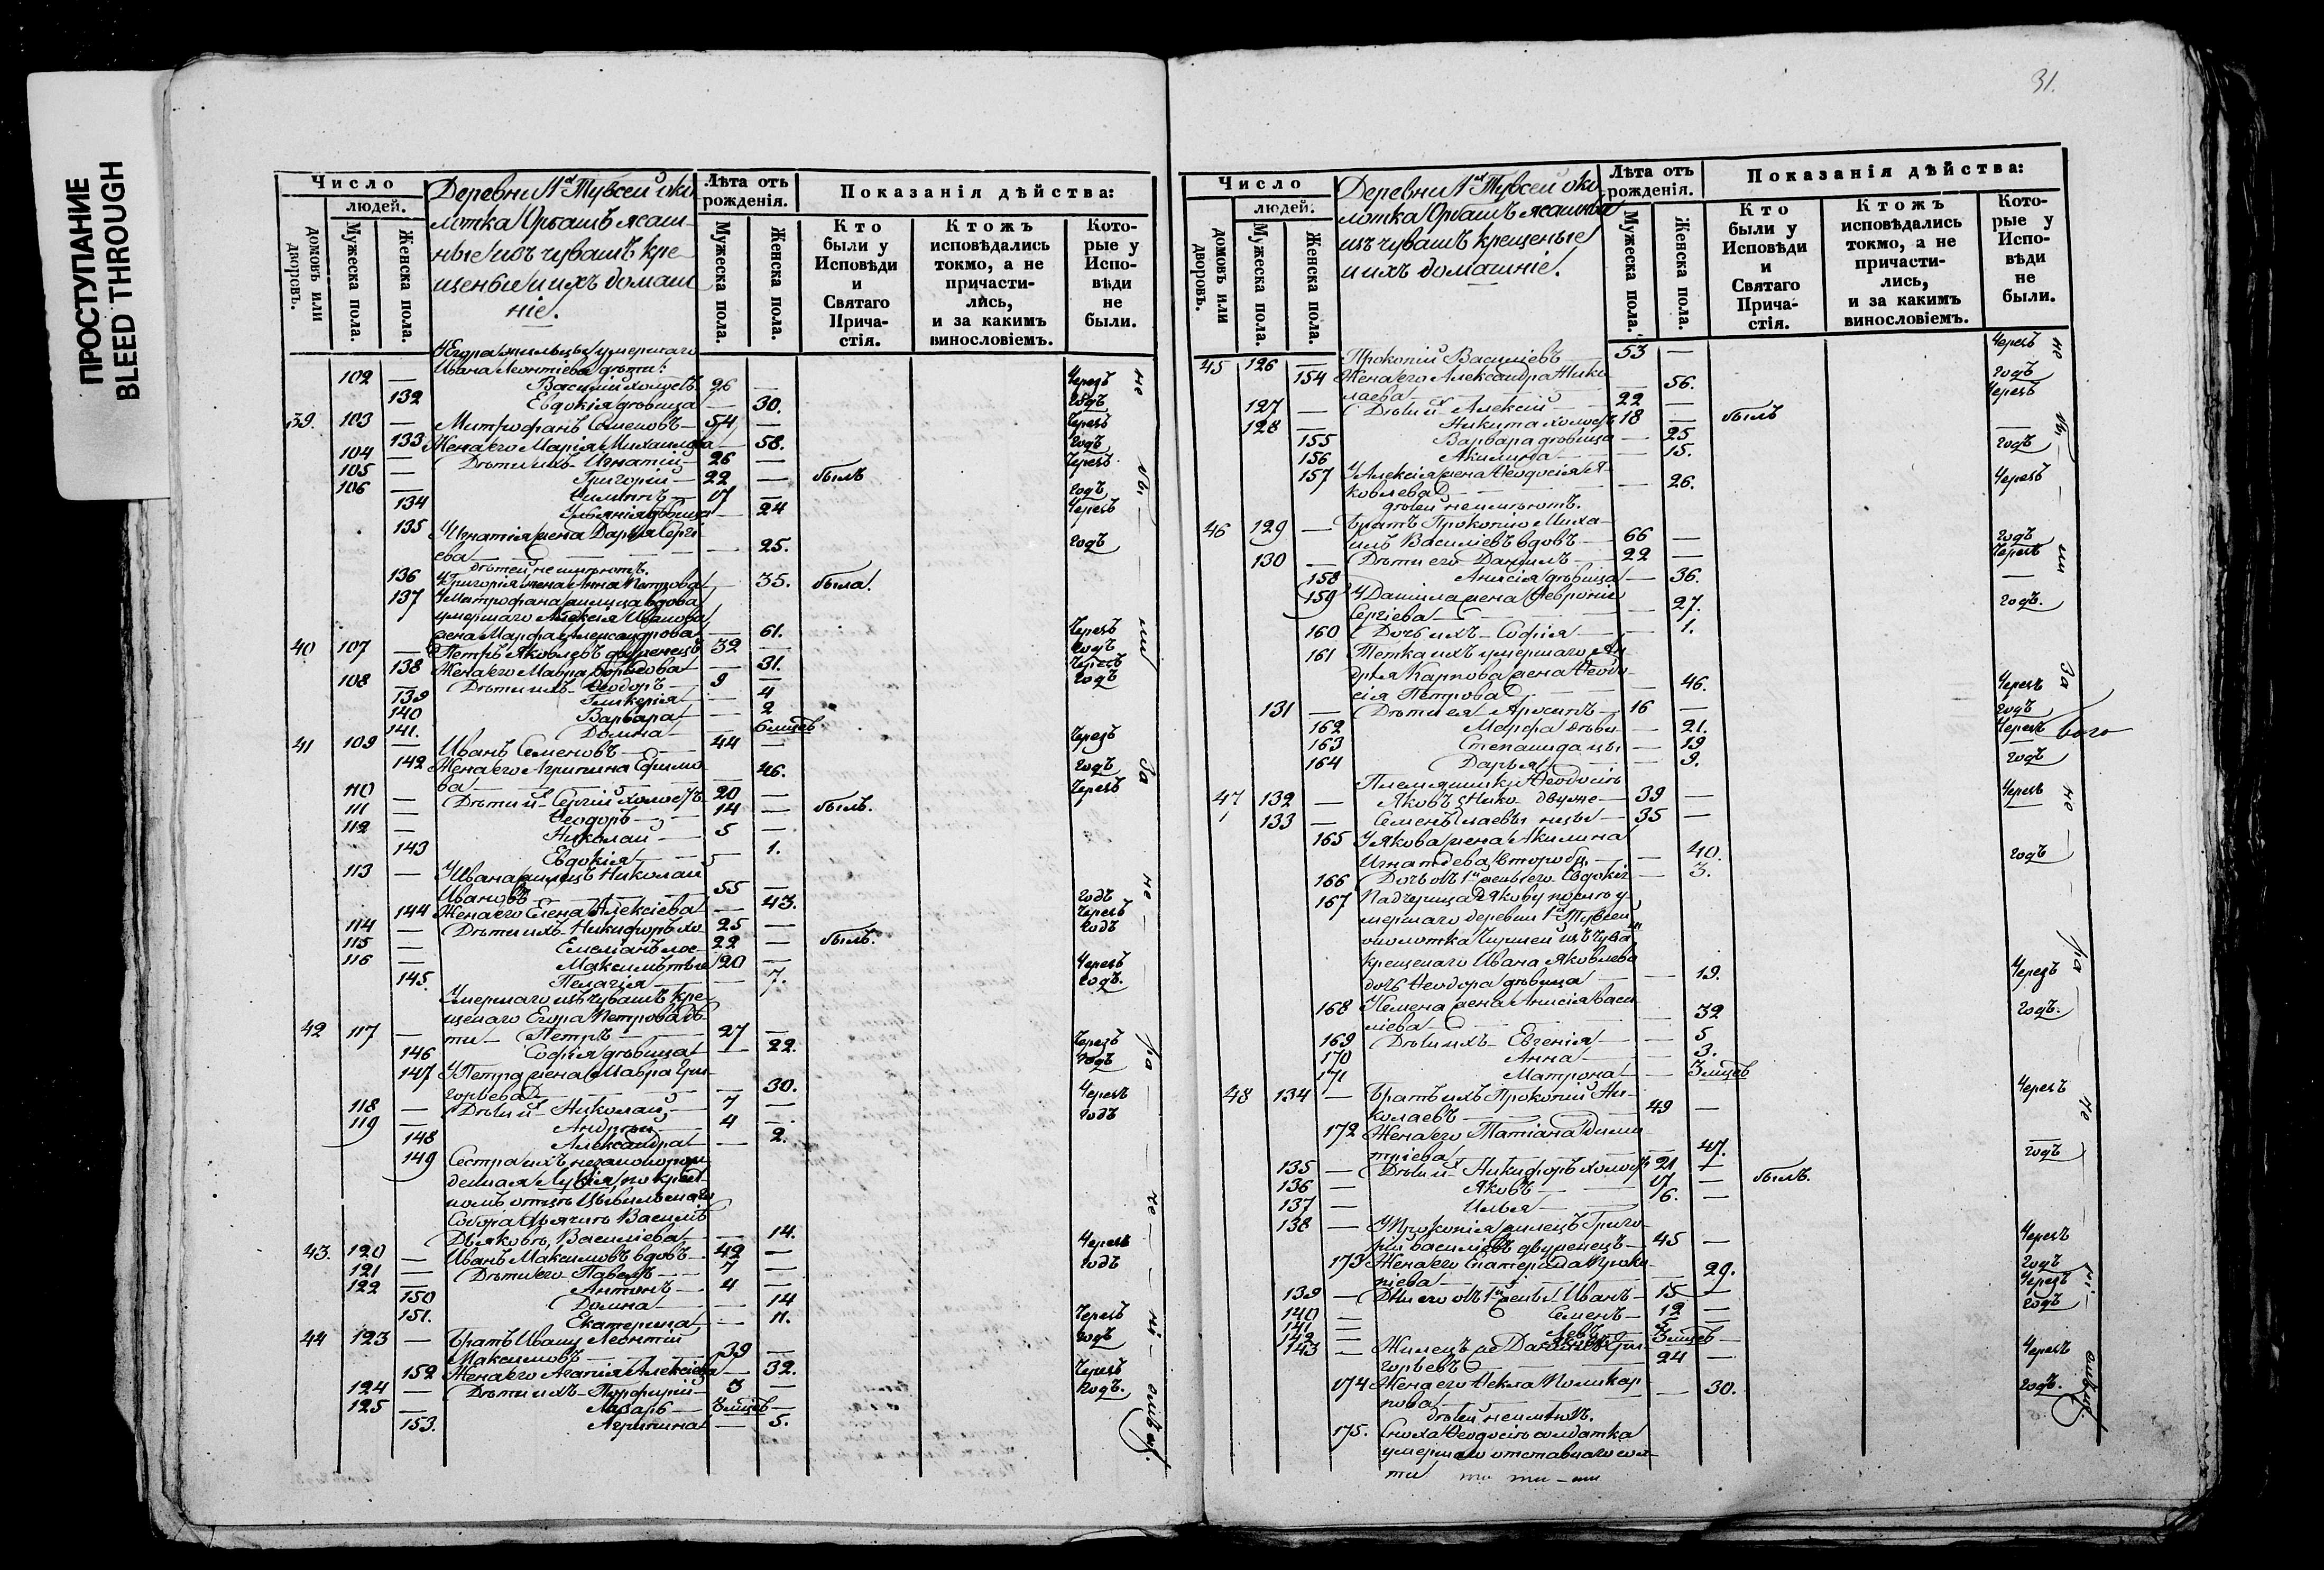 ПРОСТУПАНИЕ
BLEED THROUGH
31.
Число
людей.
домовъ или дворовъ.
Мужеска пола.
Женска пола.
Деревни 1й Тувсей око
лотка Орбашъ ясаш-
ные изъ чувашъ кре-
щеные и ихъ домаш
ніе.
Лѣта отъ рожденія.
Мужеска пола.
Женска пола.
Показанія дѣйства:
Кто были у Исповѣди и Святаго Прича-стія.
Ктожъ исповѣдались токмо, а не причасти-лись, и за какимъ винословіемъ.
Кото-рые у Испо-вѣди не были.
умершаго
Ивана Леонтіева дѣти:
102 — Василій холостъ 26 — Черезъ
132 Евдокія дѣвица — 30. годъ
39. 103 — Митрофанъ Семеновъ — 54 — Черезъ
133 Жена его Марія Михаилова — 58. годъ
104 — Дѣти ихъ Игнатій — 26 — Черезъ
105 — Григорій — 22 — былъ
106 — Филиппъ — 17 — годъ
134 Ульянія дѣвица — 24 Черезъ
135 У Игнатія жена Дарья Сергі
ева — 25. годъ
дѣтей не имѣютъ.
136 У Григорія жена Анна Петрова — 35. была.
137 У Митрофана жилица вдова
умершаго Алексія Иванова
жена Марфа Александрова — 61. Черезъ
40 107 — Петръ Яковлевъ двуженецъ 32 — годъ
138 Жена его Мавра — 31. Черезъ
108 — Дѣти ихъ Ѳеодоръ — 9 — годъ
139 Гликерія — 4
140 Варвара — 2
141. Домна — 6 мцовъ
41 109 — Иванъ Семеновъ — 44 — Черезъ
142 Жена его Агрипина Ефимо
ва — 46. годъ
110 — Дѣти ихъ Сергій холостъ 20 — Черезъ
111 — Ѳеодоръ — 14 — былъ.
112 — Николай — 5 —
143 Евдокія — 1.
113 — У Ивана жилецъ Николай
Ивановъ — 55 — годъ
144 Жена его Елена Алексіева — 43. Черезъ
114 — Дѣти ихъ Никифоръ хо 25 — годъ
115 — Емеліанъ лос- 22 — былъ.
116 — Максимъ тые 20 — Черезъ
145. Пелагія — 7. годъ.
Умершаго изъ чувашъ кре-
щенаго Егора Петрова дѣ
42 117 — ти — Петръ — 27 — Черезъ
146 Софія дѣвица — 22. годъ
147 У Петра жена Мавра Гри-
горьева — 30. Черезъ
118 — Дѣти ихъ Николай, — 7 — годъ
119 — Андрей — 4 —
148 Александра — 2.
149 Сестра ихъ незаконорож
денная Лукія, по крест
номъ отцѣ Цывильскаго
Собора Дьячкѣ Василіѣ
Дьяковѣ, Василіева — 14.
43. 120 — Иванъ Максимовъ вдовъ — 42 — Черезъ
121 — Дѣти его Павелъ — 7 — годъ
122 — Антонъ — 4 —
150 Домна — 14
151. Екатерина — 11. Черезъ
44 123 — Братъ Ивану Леонтій
Максимовъ — 39 — годъ
152 Жена его Агапія Алексіева — 32. Черезъ
124 — Дѣти ихъ Порфирій — 3 — годъ.
125 — Лазарь — 8 мцовъ —
153. Агрипина — 5.
Число
людей.
домовъ или дворовъ.
Мужеска пола.
Женска пола.
Деревни 1й Тувсей око
лотка Орбашъ ясашные
изъ чувашъ крещеные
и ихъ домашніе.
Лѣта отъ рожденія.
Мужеска пола.
Женска пола.
Показанія дѣйства:
Кто были у Исповѣди и Святаго Прича-стія.
Ктожъ исповѣдались токмо, а не причасти-лись, и за какимъ винословіемъ.
Кото-рые у Испо-вѣди не были.
45 126 — Прокопій Василіевъ — 53 — Черезъ
154 Жена его Александра Нико
лаева — 56. годъ
127 — Дѣти ихъ Алексій — 22 — Черезъ
128 — Никита холостъ 18 — былъ
155 Варвара дѣвица — 25
156 Акилина — 15. годъ
157 У Алексія жена Ѳеодосія Я-
ковлева — 26. Черезъ
дѣтей не имѣютъ.
46 129 — Братъ Прокопію Миха-
илъ Василіевъ вдовъ — 66 — годъ
130 — Дѣти его Даніилъ — 22 — Черезъ
158 Анисія дѣвица — 36.
159 У Даніила жена Февронія
Сергіева — 27. годъ.
160 Дочь ихъ — Софія — 1.
161 Тетка ихъ умершаго Ан
дрея Карпова жена Ѳеодо-
сія Петрова — 46. Черезъ
131 — Дѣти ея — 16 — годъ
162 Марфа дѣви — 21. Черезъ
163 Степанида цы — 19
164 Дарья — 9. годъ
Племянники Ѳеодосіѣ
47 132 — Яковъ Нико двуже — 39 — Черезъ
133 — Семенъ лаевы нцы — 35 —
165 У Якова жена Акилина
Игнатьева — 40. годъ
166 Дочь отъ 1й жены его Евдокія — 3.
167 Падчерица Якову послѣ у-
мершаго деревни 1й Тувсей
околотка изъ чуваш
крещенаго Ивана Яковлева
дочь Ѳеодора дѣвица — 19. Черезъ
168 Семена жена Анисія Васи
ліева — 32 годъ.
169 Дѣти ихъ Евгенія — 5
170 Анна — 3.
171 Матрона — 3 мцовъ
48 134 — Братъ ихъ Прокопій Ни-
колаевъ — 49 — Черезъ
172 Жена его Татіана Дими
тріева — 47. годъ
135 — Дѣти ихъ Никифоръ холостъ 21 —
136 — Яковъ — 17 — былъ.
137 — Илья — 16. —
138 — У Прокопія жилецъ Григо-
рій Василіевъ двуженецъ — 45 — Черезъ
173 Жена его Екатерина Проко
піева — 29. годъ
139 — Дѣти его отъ 1й жены Иванъ — 15 — Черезъ
140 — Семенъ — 12 — годъ
141 — Левъ — 5 —
142 — 3 мцовъ —
143 — Жилецъ Гри-
горьевъ — 24 — Черезъ
174 Жена его Ѳекла Поликар
пова — 30. годъ.
дѣтей не имѣютъ.
175. Сноха Ѳеодосіѣ солдатка
умершаго отставного